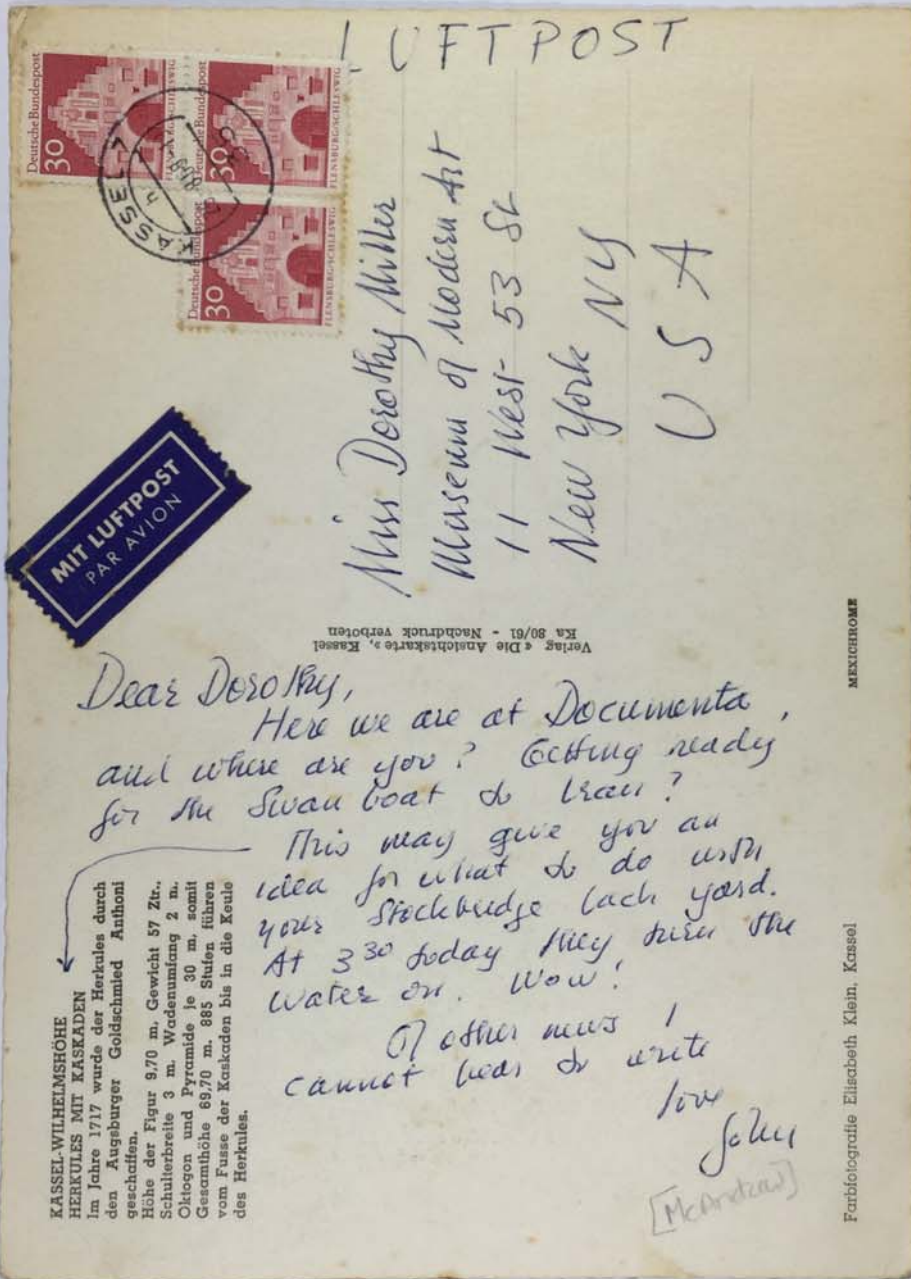 LUFTPOST
Deutsche Bundespost
30
FLENSBURG/SCHLESWIG
Deutsche Bundespost
30
FLENSBURG/SCHLESWIG
Deutsche Bundespost
30
FLENSBURG/SCHLESWIG
KASSEL 7
MIT LUFTPOST
PAR AVION
Miss Dorothy Miller
Museum of Modern Art
11 West 53 St
New York NY
USA
Verlag « Die Ansichtskarte », Kassel
Ka 80/61 - Nachdruck verboten
Dear Dorothy,
Here we are at Documenta,
and where are you? Getting ready
for the Swan boat to Iran?
This may give you an
idea for what to do with
your Stockbridge back yard.
At 3 30 today they turn the
water on. Wow!
Of other news I
cannot bear to write
love
John
[McAndrew]
KASSEL-WILHELMSHÖHE
HERKULES MIT KASKADEN
Im Jahre 1717 wurde der Herkules durch
den Augsburger Goldschmied Anthoni
geschaffen.
Höhe der Figur 9,70 m, Gewicht 57 Ztr.,
Schulterbreite 3 m. Wadenumfang 2 m.
Oktogon und Pyramide je 30 m, somit
Gesamthöhe 69,70 m. 885 Stufen führen
vom Fusse der Kaskaden bis in die Keule
des Herkules.
Farbfotografie Elisabeth Klein, Kassel
MEXICHROME